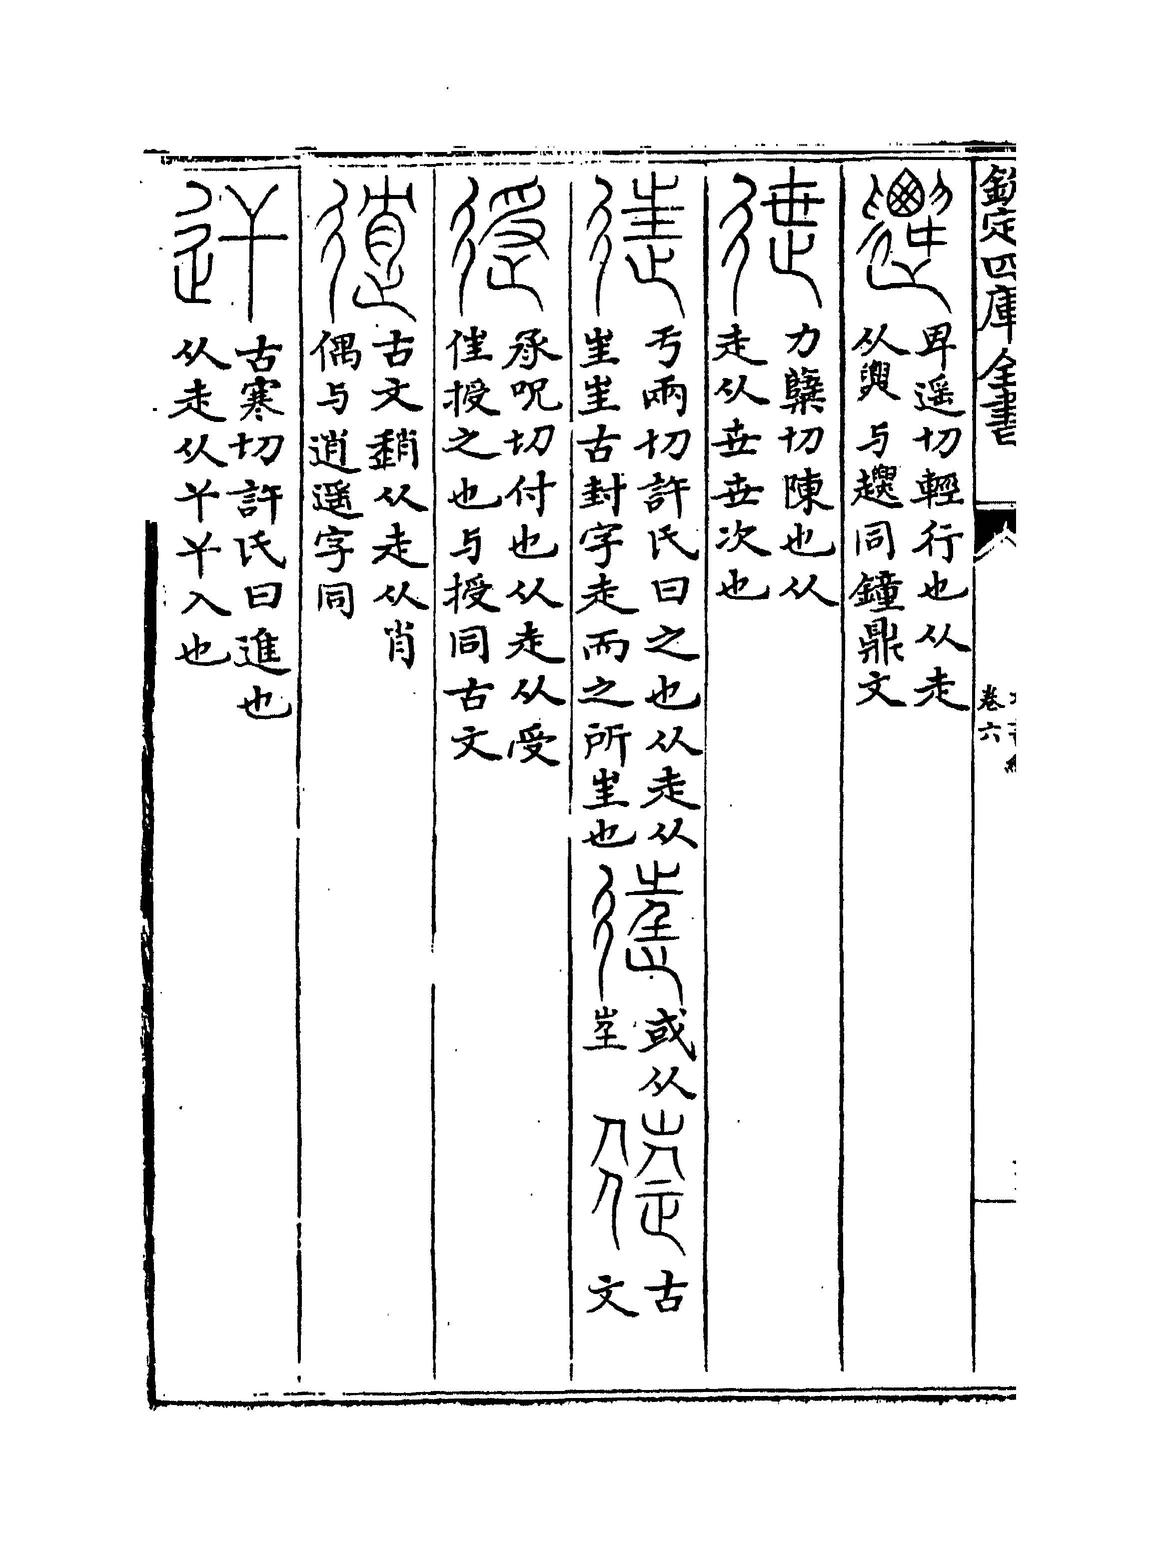 欽定四庫全書
卷六
卑遥切輕行也从走
从㷼与趮同鐘鼎文
力櫱切陳也从
走从㐀㐀次也
于兩切許氏曰之也从走从
㞷㞷古封字走而之所㞷也
或从
㞷
古
文
承呪切付也从走从受
隹授之也与授同古文
古文䎐从走从肖
偶与逍遥字同
古寒切許氏曰進也
从走从丫丫入也